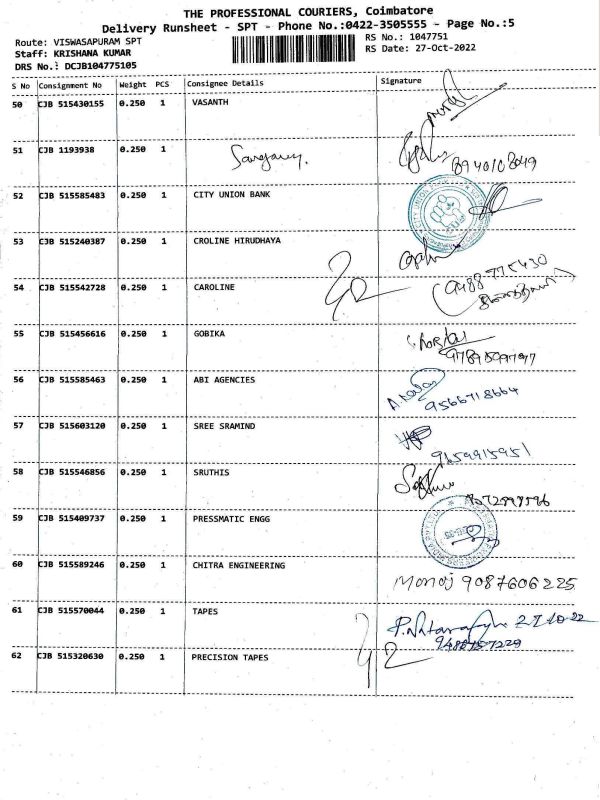 THE PROFESSIONAL COURIERS, Coimbatore
Delivery Runsheet - SPT - Phone No.:0422-3505555 - Page No.:5
Route: VISWASAPURAM SPT
Staff: KRISHANA KUMAR
DRS No.: DCJB104775105
RS No.: 1047751
RS Date: 27-Oct-2022
S No Consignment No Weight PCS Consignee Details Signature
50 CJB 515430155 0.250 1 VASANTH
51 CJB 1193938 0.250 1
8940102049
52 CJB 515585483 0.250 1 CITY UNION BANK
53 CJB 515240387 0.250 1 CROLINE HIRUDHAYA
54 CJB 515542728 0.250 1 CAROLINE
9488775430
55 CJB 515456616 0.250 1 GOBIKA
56 CJB 515585463 0.250 1 ABI AGENCIES
9566718664
57 CJB 515603120 0.250 1 SREE SRAMIND
9659915951
58 CJB 515546856 0.250 1 SRUTHIS
59 CJB 515409737 0.250 1 PRESSMATIC ENGG
60 CJB 515589246 0.250 1 CHITRA ENGINEERING
Manoj 9087606225
61 CJB 515570044 0.250 1 TAPES
27-10-22
62 CJB 515320630 0.250 1 PRECISION TAPES